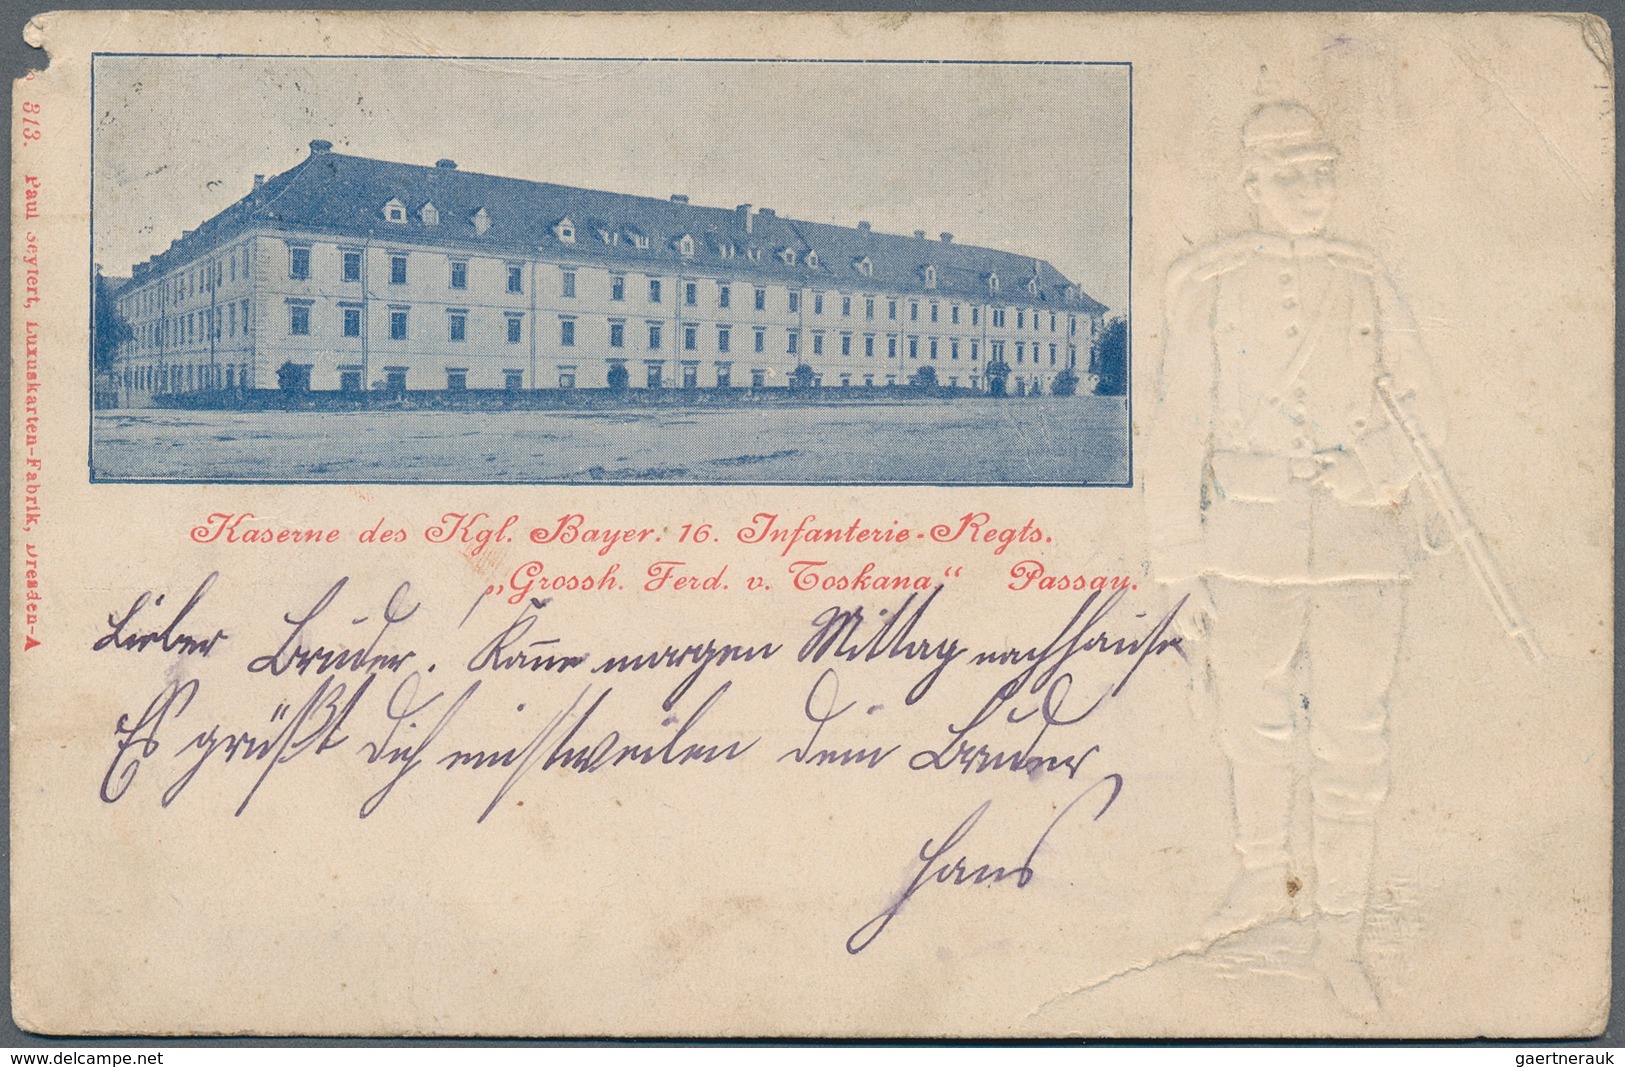 313. Paul Seyfert, Luxuskarten-Fabrik, Dresden-A
Kaserne des Kgl. Bayer. 16. Infanterie-Regts.
„Grossh. Ferd. v. Toskana.“ Passau.
Lieber Bruder! Kom̅e morgen Mittag nachhause
Es grüßt Dich einstweilen dein Bruder
Hans
www.delcampe.net
gaertnerauk